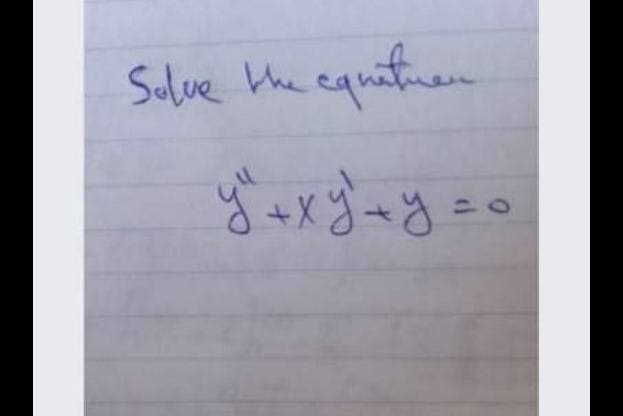 Solve the equation
y'' + x y' + y = 0